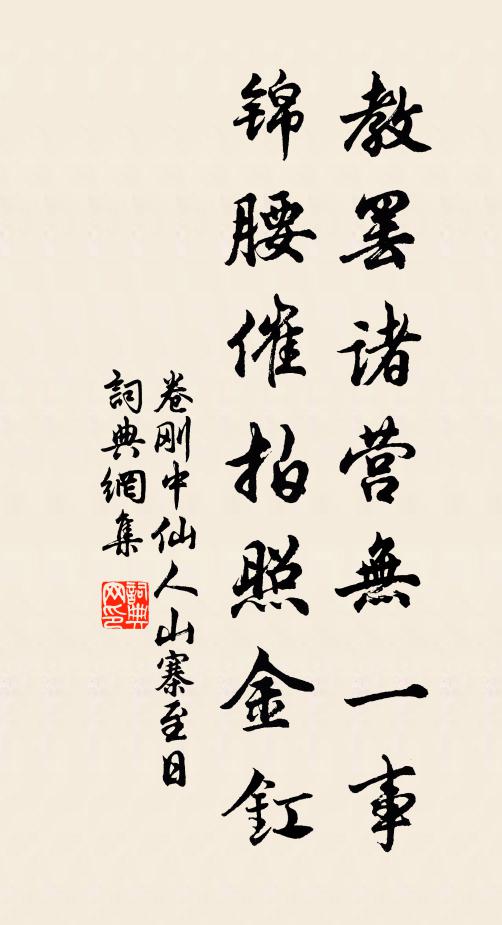 教罢诸营無一事
锦腰催拍照金釭
卷刚中仙人山寨至日
詞典網集
詞典
网印